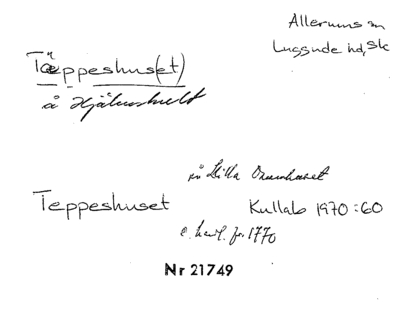 Allerums sn
Luggude hd, Sk
Täppeshus(et)
å Hjälmshult
på Lilla
Teppeshuset Kullab 1970:60
e. kart. fr. 1770
Nr 21749